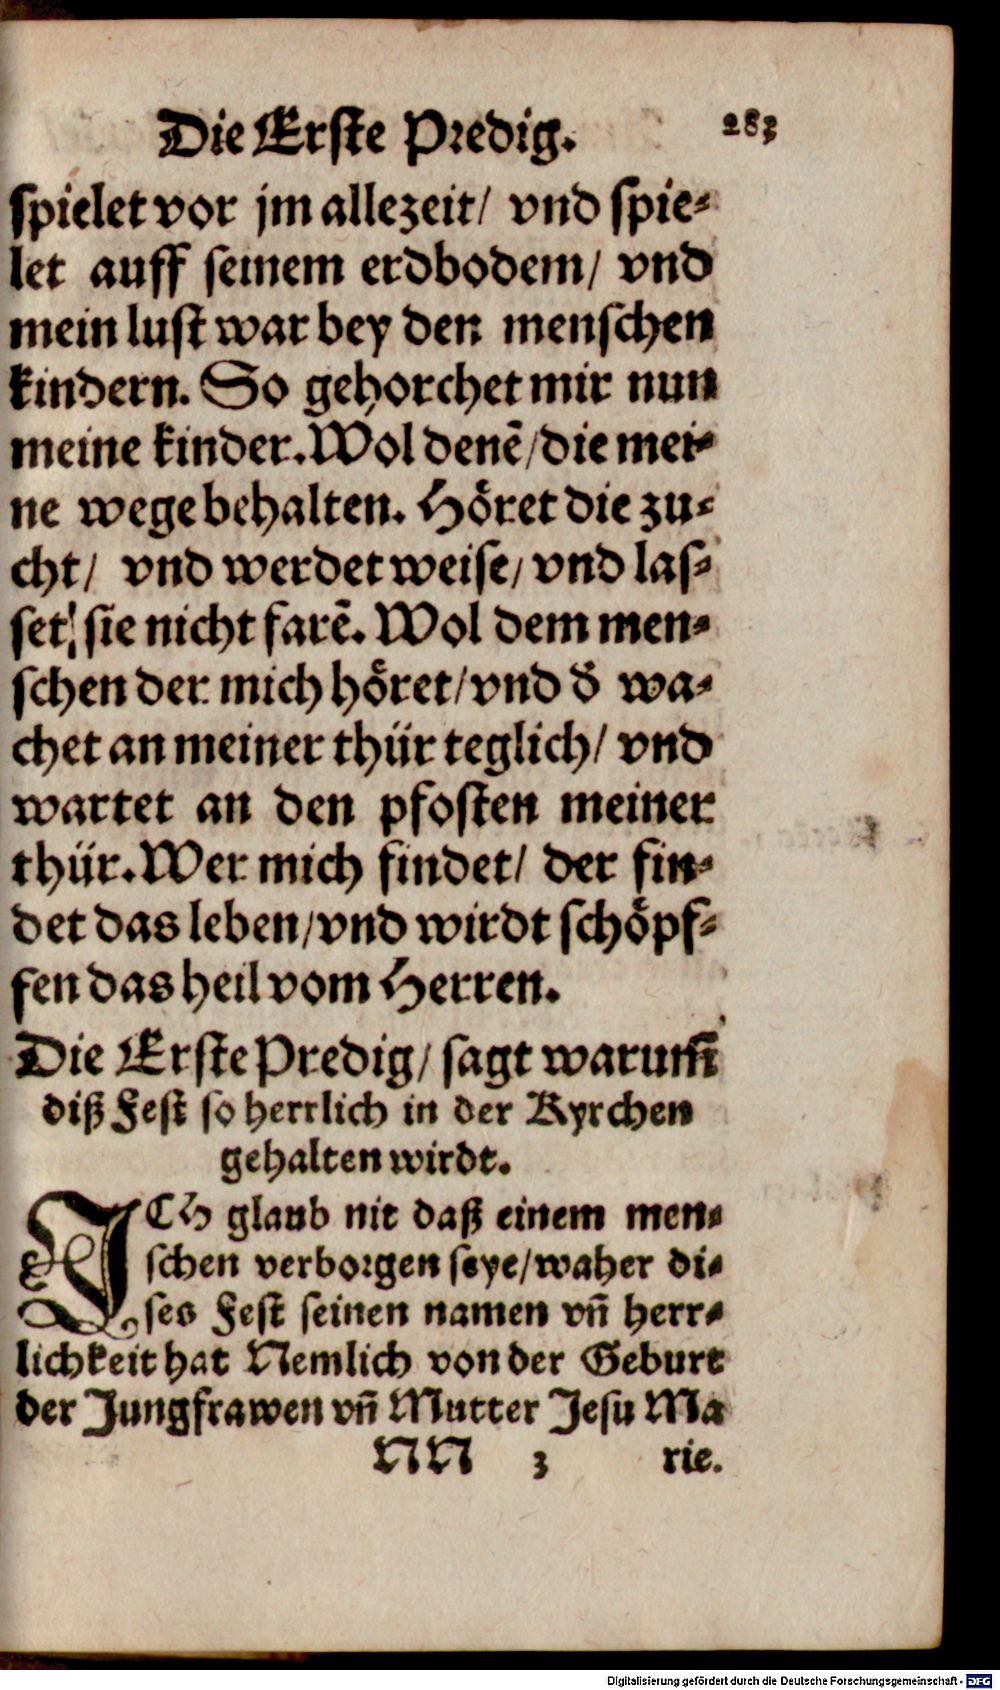 Die Erste Predig. 283
spielet vor jm allezeit/ vnd spie⸗
let auff seinem erdbodem/ vnd
mein lust war bey den menschen
kindern. So gehorchet mir nun
meine kinder. Wol denẽ/ die mei⸗
ne wege behalten. Hoͤret die zu⸗
cht/ vnd werdet weise/ vnd las⸗
set sie nicht farẽ. Wol dem men⸗
schen der mich hoͤret/ vnd d̕ wa⸗
chet an meiner thür teglich/ vnd
wartet an den pfosten meiner
thür. Wer mich findet/ der fin⸗
det das leben/ vnd wirdt schoͤpf⸗
fen das heil vom Herren.
Die Erste Predig/ sagt warum̃
diß Fest so herrlich in der Kyrchen
gehalten wirdt.
ICH glaub nit daß einem men⸗
schen verborgen seye/ waher di⸗
ses Fest seinen namen vñ herr⸗
lichkeit hat Nemlich von der Geburt
der Jungfrawen vñ Mutter Jesu Ma
NN 3 rie.
Digitalisierung gefördert durch die Deutsche Forschungsgemeinschaft - DFG